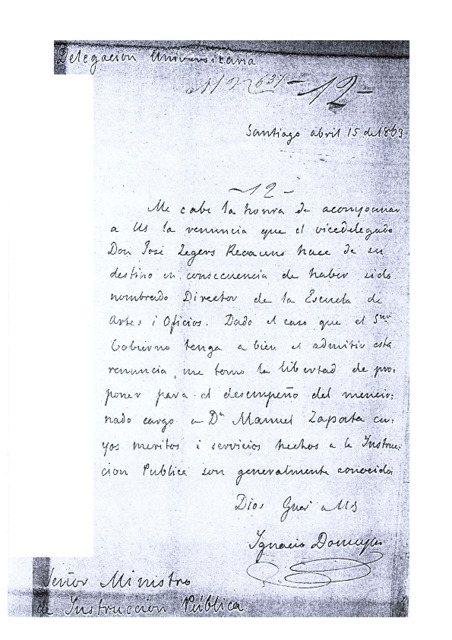 Delegacion Universitaria
Nº 2637 - 12 -
Santiago abril 15 de 1863
- 12 -
Me cabe la honra de acompañar
a US la renuncia que el vicedelegado
Don José Zegers Recacens hace de su
destino en consecuencia de haber sido
nombrado Director de la Escuela de
Artes i Oficios. Dado el caso que el Smo
Gobierno tenga a bien el admitir esta
renuncia, me tomo la libertad de pro-
poner para el desempeño del mencio-
nado cargo a Dn Manuel Zapata cu-
yos meritos i servicios hechos a la Instruc-
cion Publica son generalmente conocidos
Dios Gue a US
Ignacio Domeyko
Señor Ministro
de Instruccion Pública